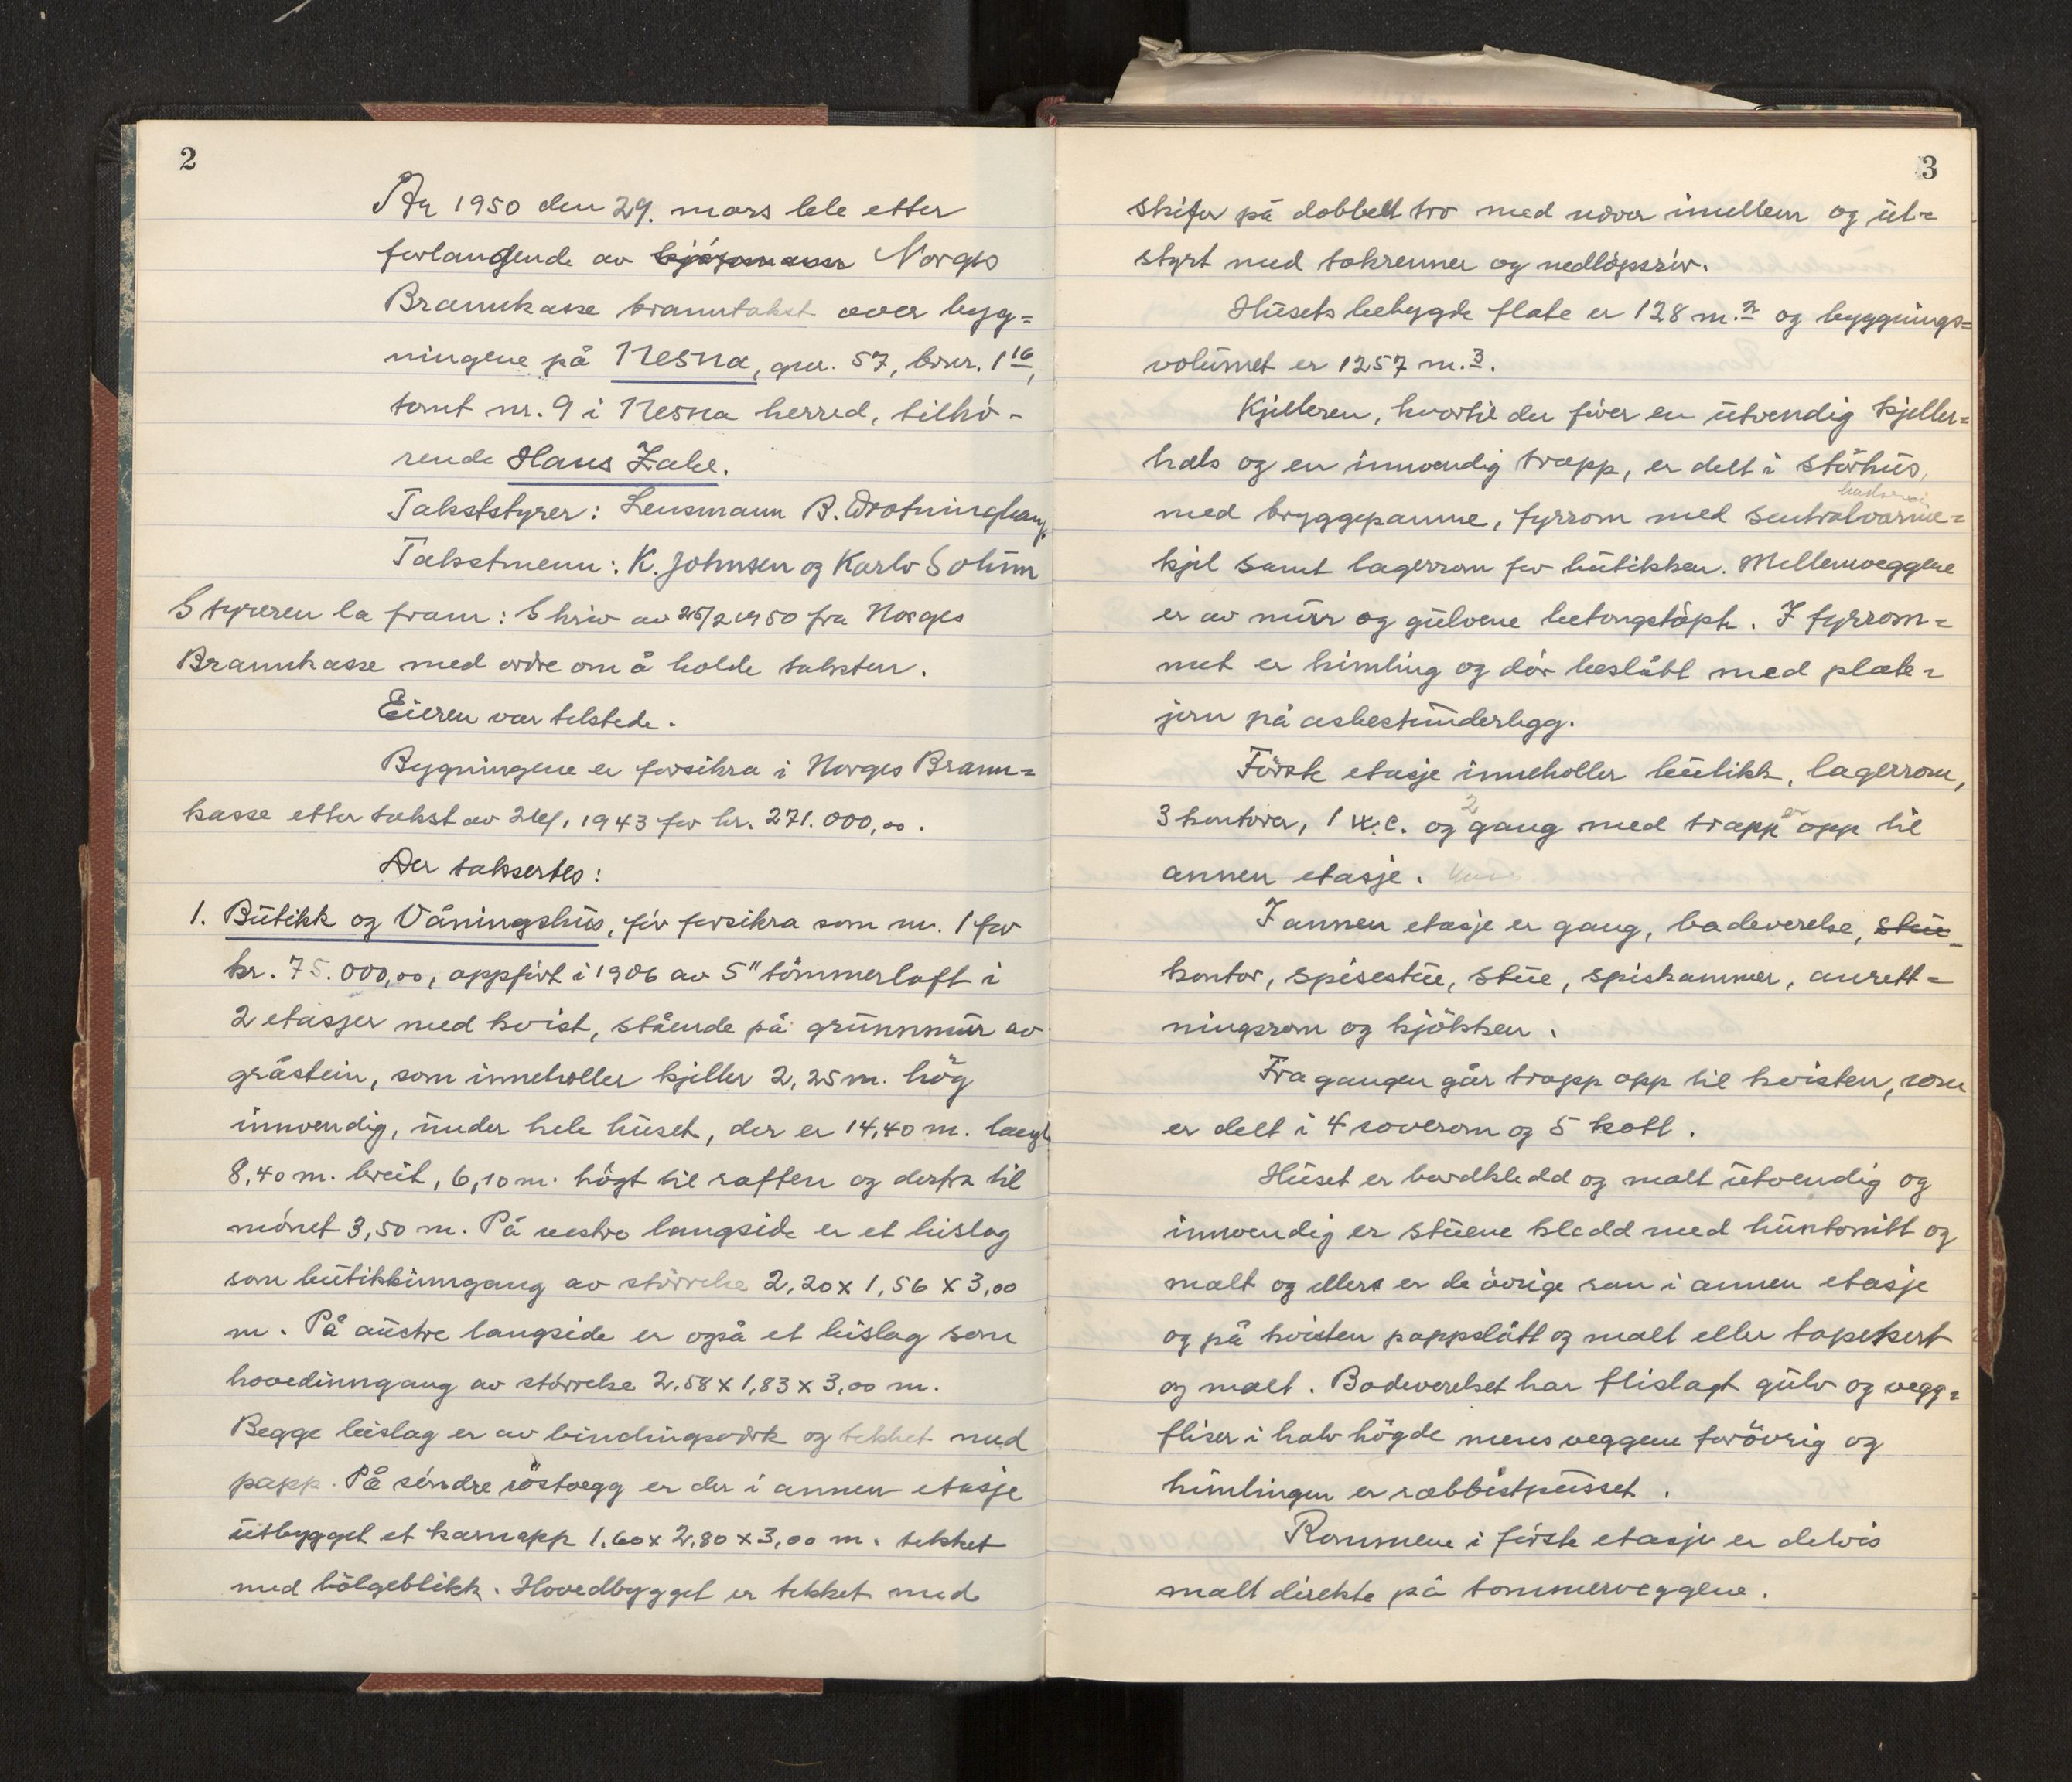 2
År 1950 den 29. mars ble etter
forlangende av kjøpmann Norges
Brannkasse branntakst over byg=
ningene på Nesna, gnr. 57, brnr. 1 16,
tomt nr. 9 i Nesna herred, tilhö-
rende Hans Zahl.
Takststyrer: Lensmann B. Drotninghaug.
Takstmenn: K. Johnsen og Karlo Solum
Styreren la fram: Skriv av 25/2 1950 fra Norges
Brannkasse med ordre om å holde taksten.
Eieren var tilstede.
Bygningene er forsikra i Norges Brann=
kasse etter takst av 1943 for kr. 271.000,00.
Der taksertes:
1. Butikk og Våningshus, för forsikra som nr. 1 for
kr. 75.000,00, oppfört i 1906 av 5" tömmerloft i
2 etasjer med kvist, stående på grunnmur av
gråstein, som inneholler kjeller 2,25 m. hög
innvendig, under hele huset, der er 14,40 m. langt
8,40 m. breit, 6,10 m. högt til raften og derfra til
mönet 3,50 m. På vestre langside er et bislag
som butikkinngang av störrelse 2,20 x 1,56 x 3,00
m. På austre langside er også et bislag som
hovedinngang av störrelse 2,58 x 1,83 x 3,00 m.
Begge bislag er av bindingsverk og tekket med
papp. På söndre röstvegg er der i annen etasje
utbygget et karnapp 1,60 x 2,80 x 3,00 m. tekket
med bölgeblikk. Hovedbygget er tekket med
3
skifer på dobbelt tro med næver imellem og ut=
styrt med takrenner og nedlöpsrör.
Husets bebygde flate er 128 m.2 og byggnings=
volumet er 1257 m.3.
Kjelleren, hvortil der förer en utvendig kjeller=
hals og en innvendig trapp, er delt i störhus,
med bryggepanne, fyrrom med sentralvarme=
kjel samt lagerrom for butikken. Mellemveggene
er av murr og gulvene betongstöpt. I fyrrom=
met er himling og dör beslått med plate=
jern på asbestunderlegg.
Förste etasje inneholler butikk, lagerrom,
3 kontorer, 1 w.c. og 2 gang med trapp er opp til
annen etasje.
I annen etasje er gang, badeverelse, stue
kontor, spisestue, stue, spiskammer, anrett=
ningsrom og kjökken.
Fra gangen går trapp opp til kvisten, som
er delt i 4 soverom og 5 kott.
Huset er bordkledd og malt utvendig og
innvendig er stuene kledd med huntonitt og
malt og ellers er de övrige rom i annen etasje
og på kvisten pappslått og malt eller tapetsert
og malt. Badeverelset har flislagt gulv og vegg=
fliser i halv högde mens veggene forövrig og
himlingen er rabbistpusset.
Rommene i förste etasje er delvis
malt direkte på tommerveggene.